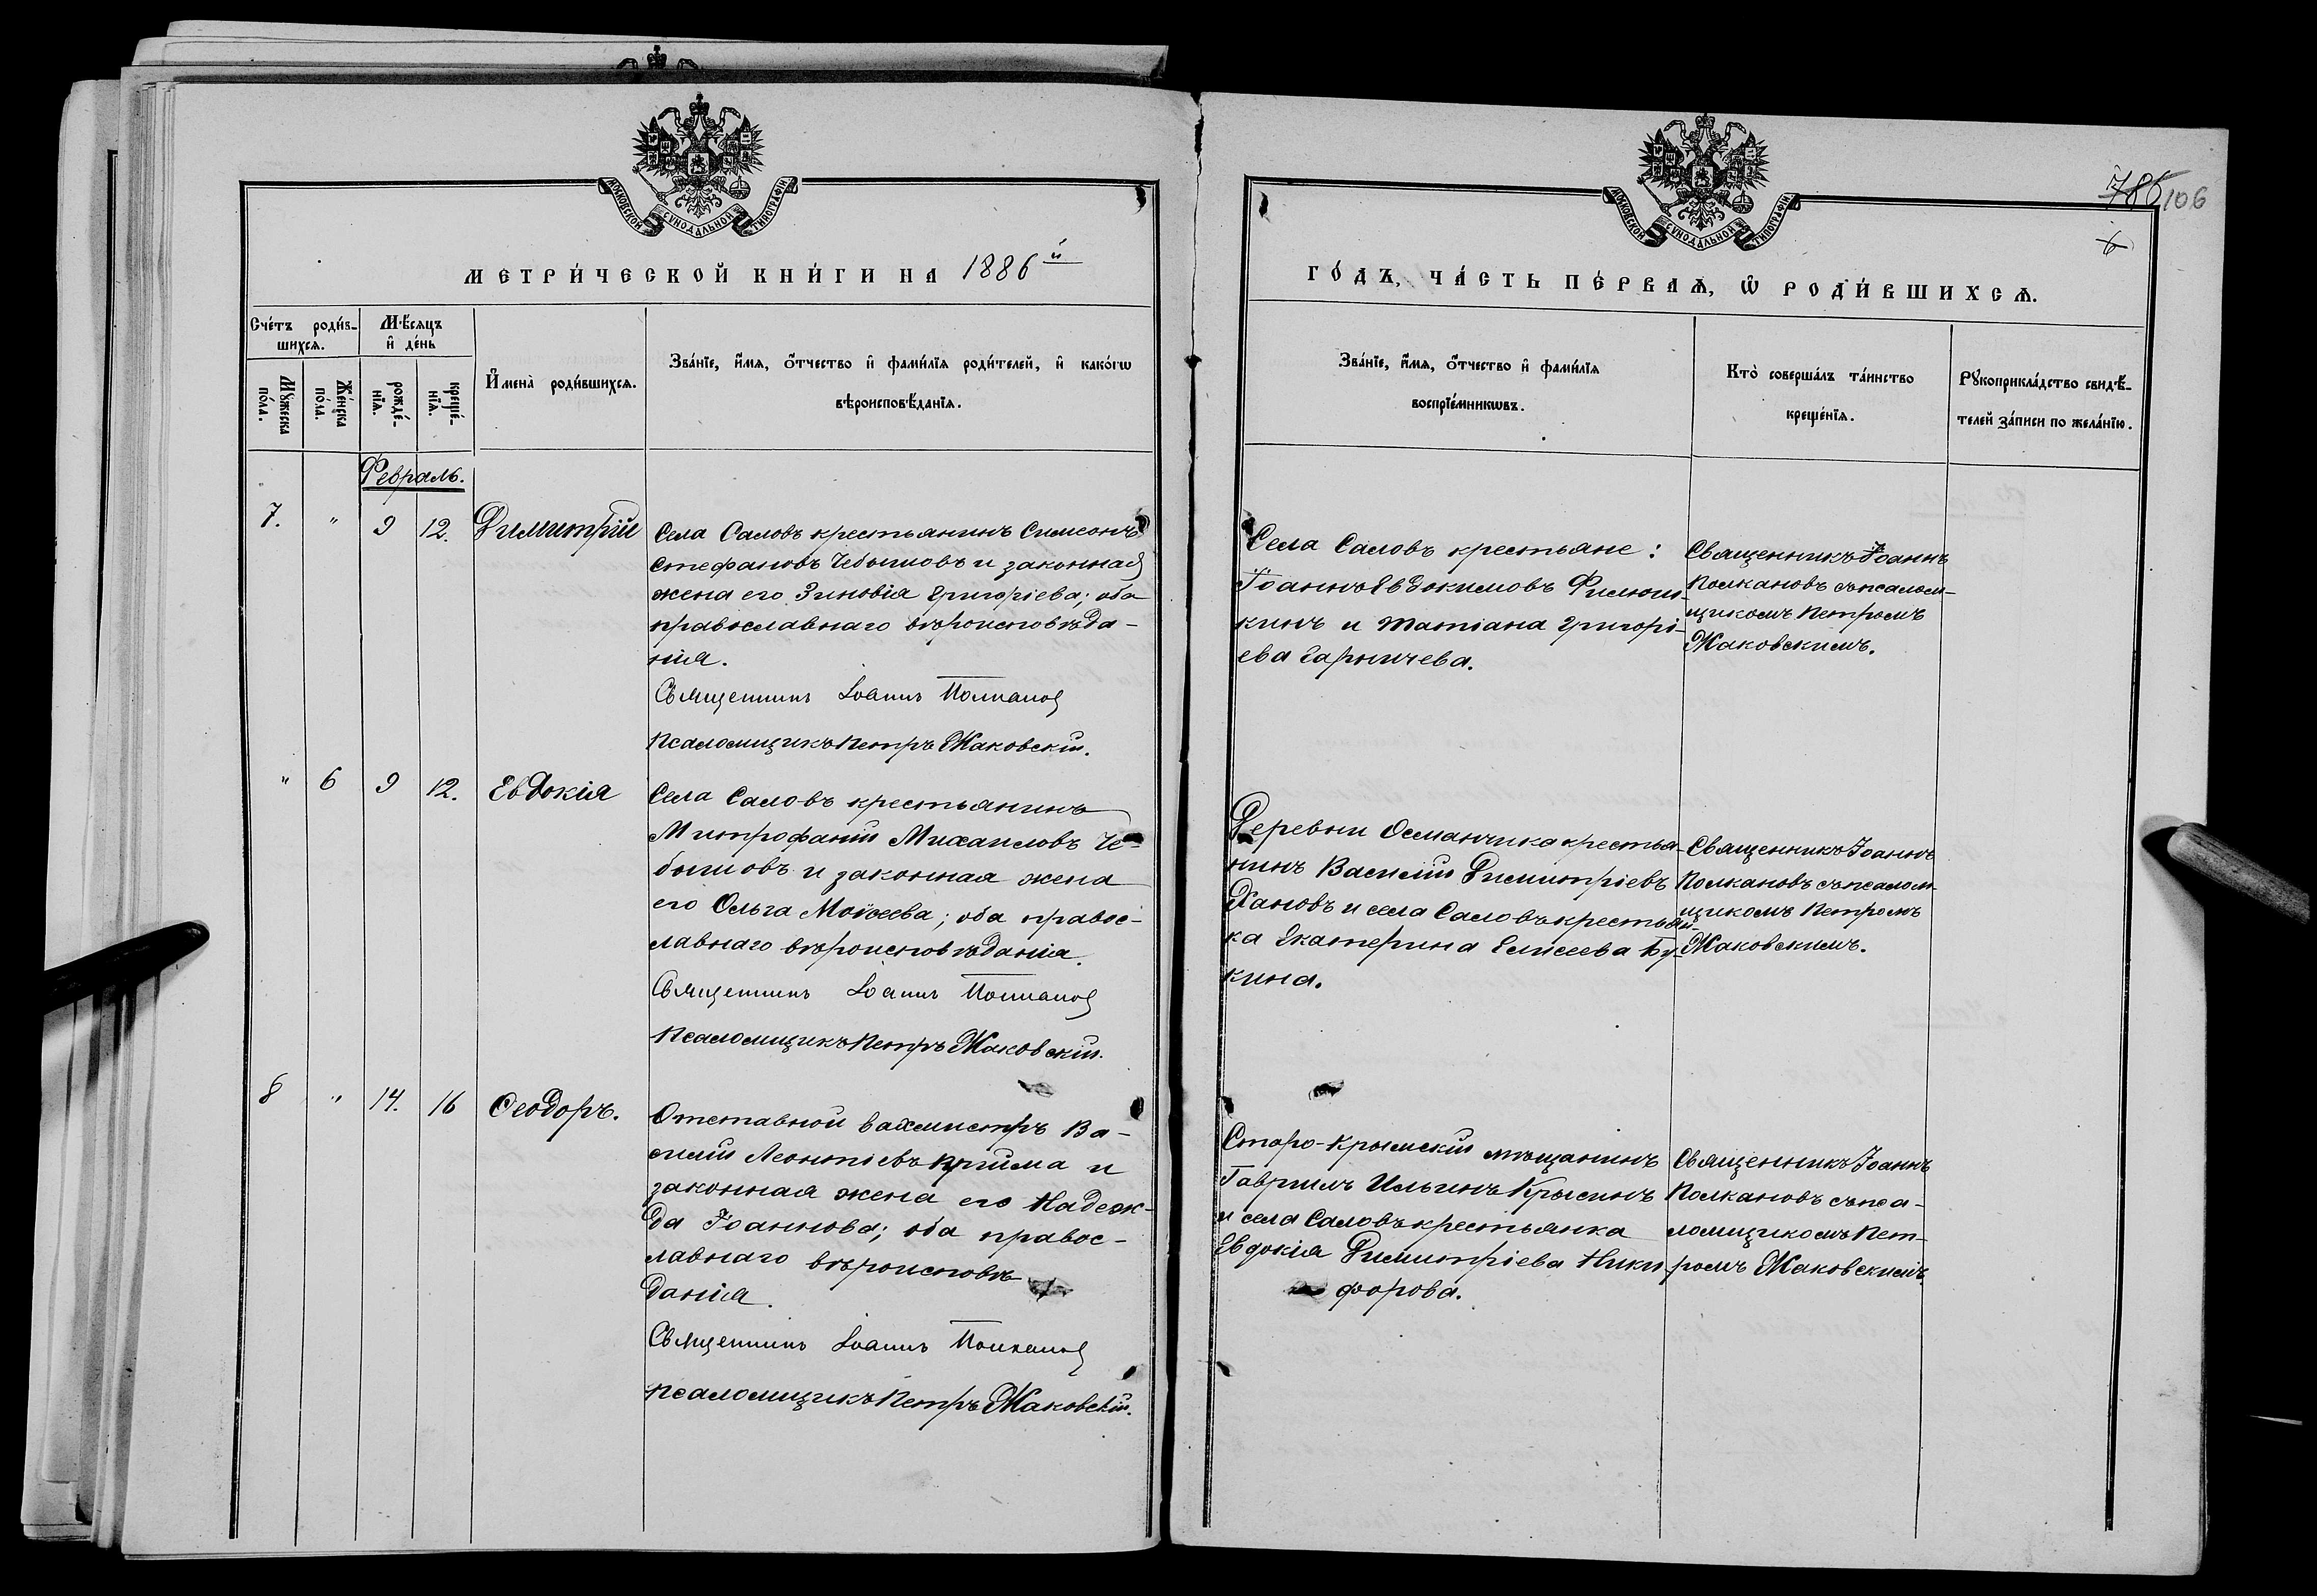 МОСКОВСКОЙ СѴНОДАЛЬНОЙ ТИПОГРАФІИ
МЕТРИ́ЧЕСКОЙ КНИ́ГИ НА 1886й
Сче́тъ роди́в-
шихсѧ.
Мѣ́сѧцъ
и҆ де́нь
Мꙋ́жеска
по́ла.
Же́нска
по́ла.
рожде́-
нїѧ.
креще́-
нїѧ.
И҆мена̀ роди́вшихсѧ.
Зва́нїе, и҆́мѧ, ѻ҆́тчество и҆ фами́лїѧ роди́телей, и҆ како́гѡ
вѣроисповѣ́данїѧ.
Февраль.
7. " 9 12. Димитрій
Села Саловъ крестьянинъ Симеонъ
Стефановъ Чебышовъ и законная
жена его Зиновія Григоріева; оба
православнаго вѣроисповѣда-
нія.
Священникъ Іоаннъ Полкановъ
Псаломщикъ Петръ Жаковскій.
" 6 9 12. Евдокія
Села Саловъ крестьянинъ
Митрофаній Михаиловъ Че-
бышовъ и законная жена
его Ольга Моѵсеева; оба правос-
лавнаго вѣроисповѣданія.
Священникъ Іоаннъ Полкановъ
Псаломщикъ Петръ Жаковскій.
8 " 14. 16 Ѳеодоръ.
Отставной вахмистръ Ва-
силій Леонтіевъ и
законная жена его Надеж-
да Іоаннова; оба правос-
лавнаго вѣроисповѣ
данія.
Священникъ Іоаннъ Полкановъ
Псаломщикъ Петръ Жаковскій.
МОСКОВСКОЙ СѴНОДАЛЬНОЙ ТИПОГРАФІИ
786 106
6
ГО́ДЪ, ЧА́СТЬ ПЕ́РВАѦ, Ѡ҆ РОДИ́ВШИХСѦ.
Зва́нїе, и҆́мѧ, ѻ҆́тчество и҆ фами́лїѧ
воспрїе́мникѡвъ.
Кто̀ соверша́лъ та́инство
креще́нїѧ.
Рꙋкоприкла́дство свидѣ́-
телей за́писи по жела́нїю.
Села Саловъ крестьяне:
Іоаннъ Евдокимовъ Филюш-
кинъ и Татіана Григорі-
ева Гарničева.
Священникъ Іоаннъ
Полкановъ съ псалом-
щикомъ Петромъ
Жаковскимъ.
Деревни Османчика крестья-
нинъ Василій Димитріевъ
Хановъ и села Саловъ крестьян-
ка Екатерина Елисеева Бу-
кина.
Священникъ Іоаннъ
Полкановъ съ псалом-
щикомъ Петромъ
Жаковскимъ.
Старо-Крымскій мѣщанинъ
Гавриилъ Ильинъ Крысинъ
и села Саловъ крестьянка
Евдокія Димитріева Ники-
форова.
Священникъ Іоаннъ
Полкановъ съ пса-
ломщикомъ Пет-
ромъ Жаковскимъ.